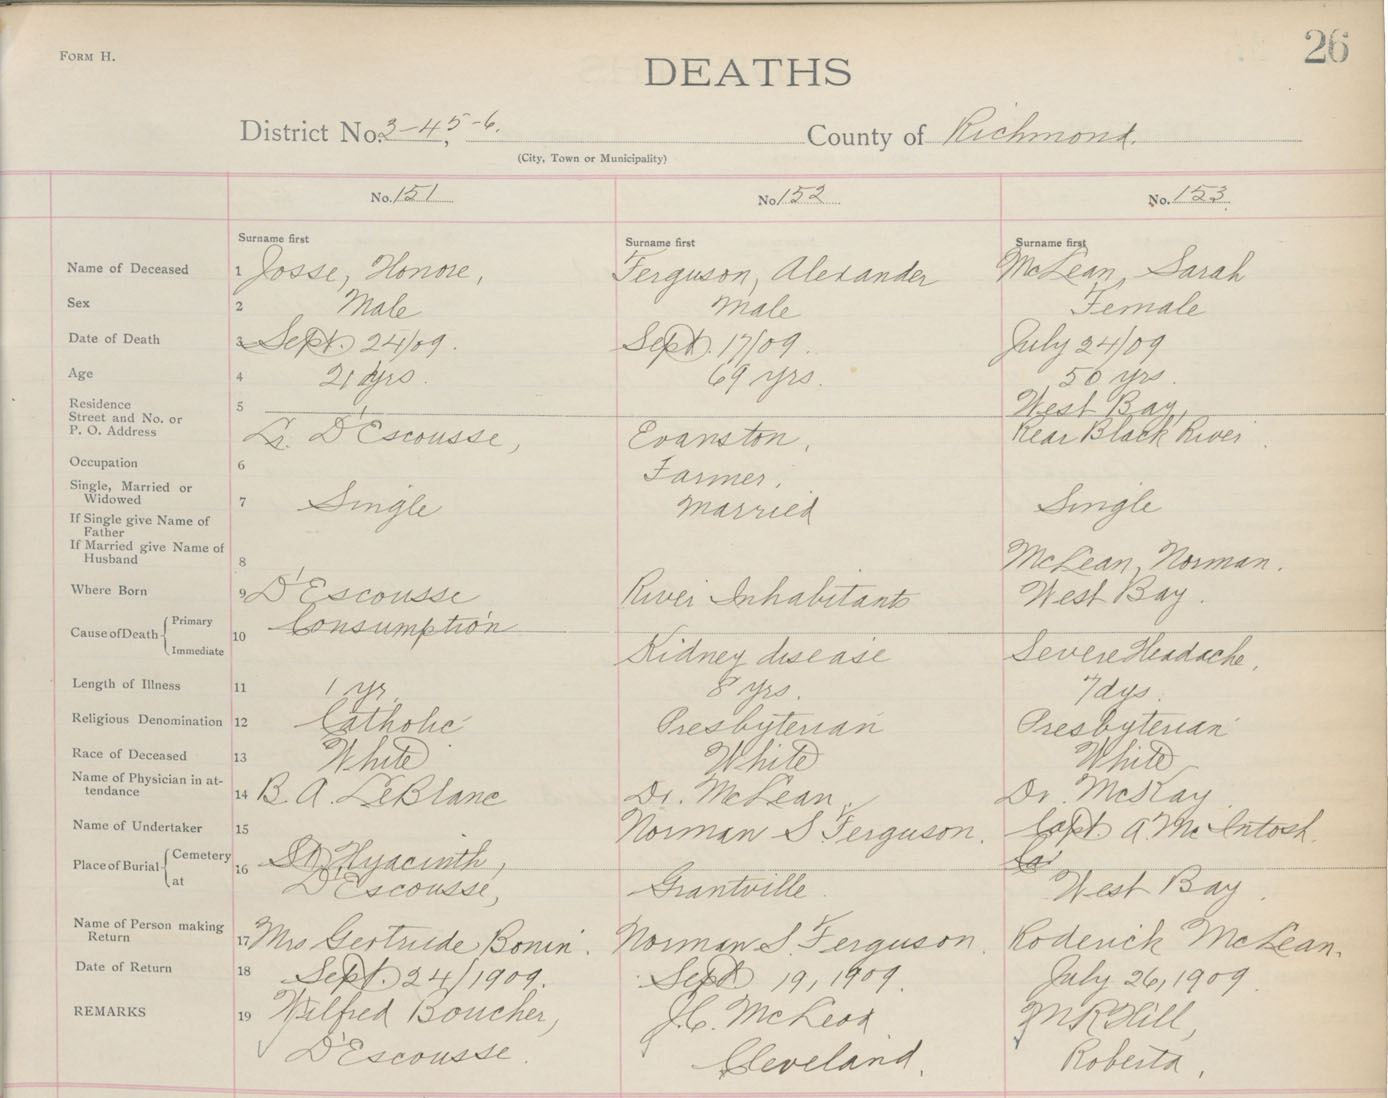 26
FORM H.
DEATHS
District No. 3-4, 5-6. County of Richmond.
(City, Town or Municipality)
No. 151 No 152 No. 153
Surname first Surname first Surname first
Name of Deceased 1 Josse, Honore, Ferguson, Alexander McLean, Sarah
Sex 2 Male Male Female
Date of Death 3 Sept. 24/09. Sept. 17/09. July 24/09
Age 4 21 yrs. 69 yrs. 50 yrs.
Residence 5 West Bay,
Street and No. or
P. O. Address D'Escousse, Evanston, Rear Black River.
Occupation 6 Farmer.
Single, Married or
Widowed 7 Single Married Single
If Single give Name of
Father
If Married give Name of
Husband 8 McLean, Norman.
Where Born 9 D'Escousse River Inhabitants West Bay.
Cause of Death Primary Consumption
10
Immediate Kidney disease Severe Headache,
Length of Illness 11 1 yr. 8 yrs. 7 dys.
Religious Denomination 12 Catholic Presbyterian Presbyterian
Race of Deceased 13 White White White
Name of Physician in at-
tendance 14 B. A. LeBlanc Dr. McLean, Dr. McKay
Name of Undertaker 15 Norman S. Ferguson. Capt. A. McIntosh.
Place of Burial Cemetery 16 St. Hyacinth,
at D'Escousse, Grantville. West Bay.
Name of Person making
Return 17 Mrs Gertrude Bonin. Norman S. Ferguson. Roderick McLean.
Date of Return 18 Sept. 24/1909. Sept 19, 1909. July 26, 1909.
REMARKS 19 Wilfred Boucher, J.C. McLeod M R Hill,
D'Escousse. Cleveland. Roberta,